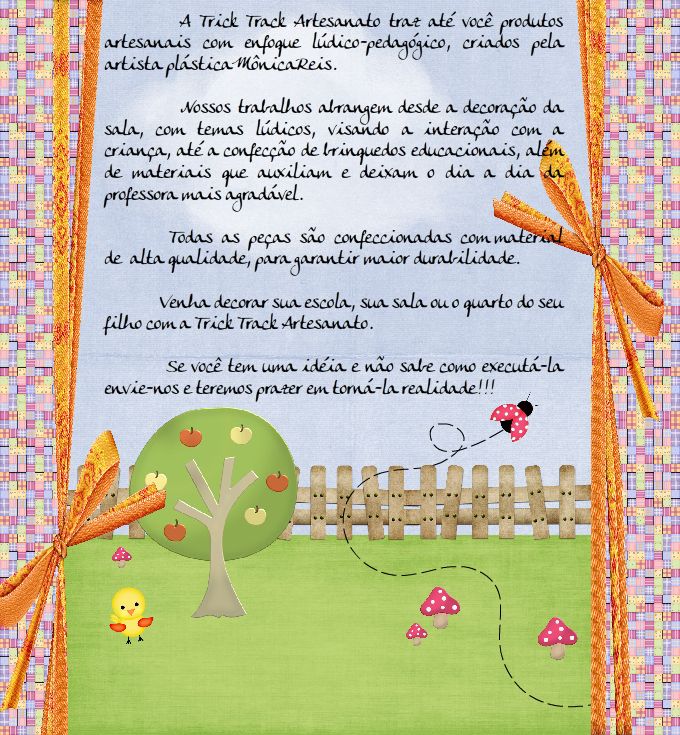 A Trick Track Artesanato traz até você produtos
artesanais com enfoque lúdico-pedagógico, criados pela
artista plástica Mônica Reis.
Nossos trabalhos abrangem desde a decoração da
sala, com temas lúdicos, visando a interação com a
criança, até a confecção de brinquedos educacionais, além
de materiais que auxiliam e deixam o dia a dia da
professora mais agradável.
Todas as peças são confeccionadas com material
de alta qualidade, para garantir maior durabilidade.
Venha decorar sua escola, sua sala ou o quarto do seu
filho com a Trick Track Artesanato.
Se você tem uma idéia e não sabe como executá-la
envie-nos e teremos prazer em torná-la realidade!!!